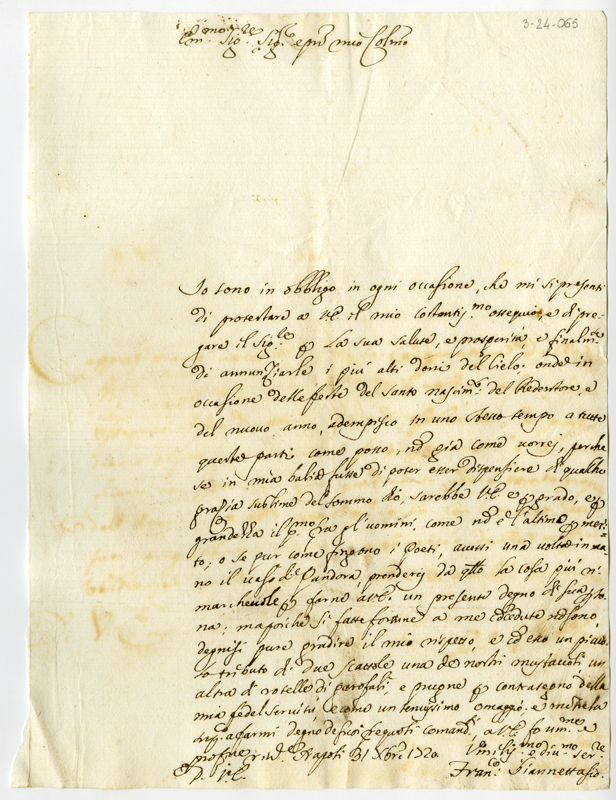 3-24-065
Em.mo Sig.re Sig.re e pne mio Colmo
Io sono in obbligo in ogni occasione, che mi si presenti
di protestare a VE il mio costantis.mo ossequio, e di pre-
gare il Sig.re p la sua salute, e prosperità, e finalm.te
di annunziarle i più alti doni del Cielo. onde in
occasione delle feste del santo nascim.to del Redentore, e
del nuovo anno, adempisco in uno stesso tempo a tutte
queste parti come posso, nō già come vorrej, perche
se in mia balia fusse di poter esser dispensiere di qualche
grazia sublime del sommo Dio, sarebbe VE e p grado, e p
grandezza il p.mo tra gl'uomini, come nō è l'ultimo p meri-
to, o se pur come fingono i Poeti, avessi una volta in ma-
no il vaso di Pandora, prenderej da la cosa più ri-
marchevole p farne a VE un presente degno di sua p̄so-
na; ma poiche sì fatte fortune a me cōcedute nō sono,
degnisi pure gradire il mio rispetto, e cō esso un picco-
lo tributo di due scattole una de nostri mustaccioli, un
altra di rotelle di e prugne p contrasegno della
mia fedel servitù, e come un tenuissimo omaggio. e
a farmi degno de suoi comandi, a VE fo um.me
Napoli 31 Xbre 1720
Umiliss.mo e div.mo ser.re
D. V.E. Fran.co Giannettasio